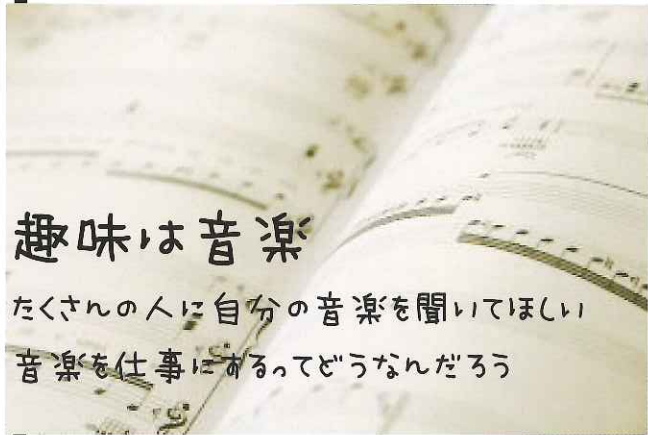 趣味は音楽
たくさんの人に自分の音楽を聞いてほしい
音楽を仕事にするってどうなんだろう